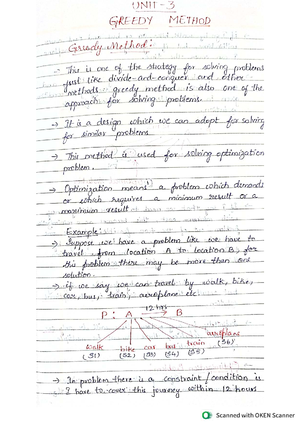 UNIT - 3
GREEDY METHOD
Greedy Method:
→ This is one of the strategy for solving problems
just like divide-and-conquer and other
methods greedy method is also one of the
approach for solving problems.
→ It is a design which we can adopt for solving
for similar problems.
→ This method is used for solving optimization
problem.
→ Optimization means a problem which demands
or which requires a minimum result or a
maximum result.
Example:
→ Suppose we have a problem like we have to
travel from location A to location B, for
this problem there may be more than one
solution.
→ if we say we can travel by walk, bike,
car, bus, train, aeroplane etc
12 hrs
P : A → B
walk bike car bus train airplane
(S1) (S2) (S3) (S4) (S5) (S6)
→ In problem there is a constraint / condition is
I have to cover this journey within 12 hours
Scanned with OKEN Scanner